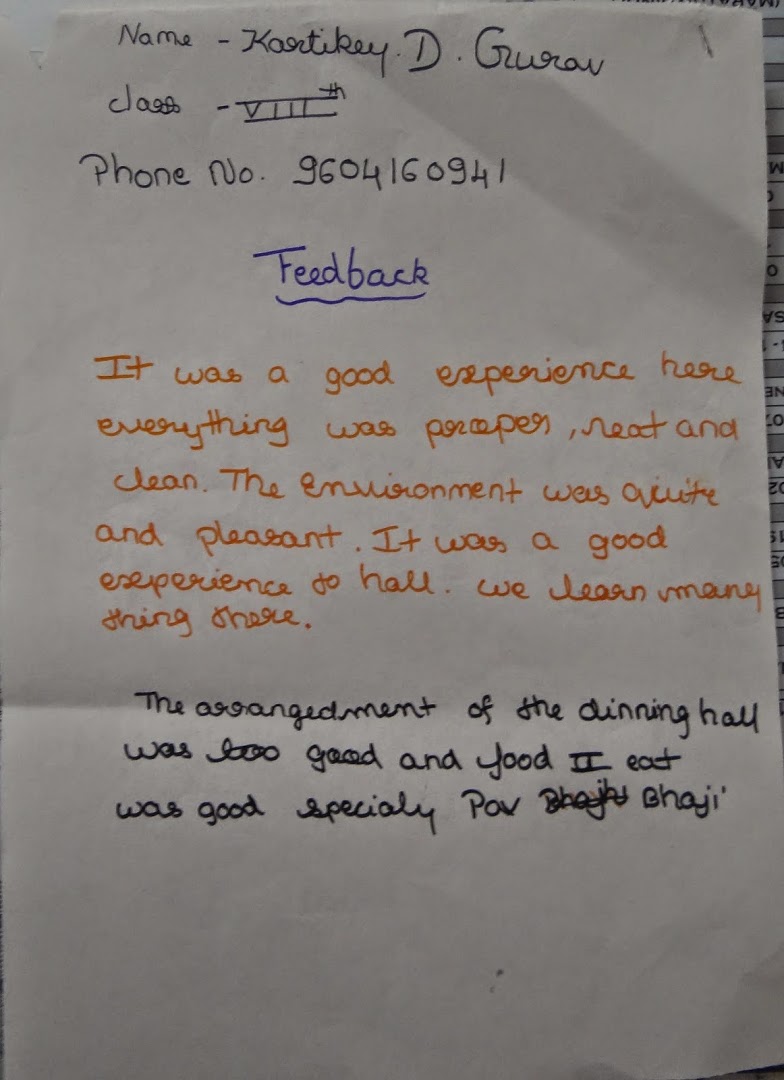 Name - Kartikey. D. Gurav
class - VIIIth
Phone No. 9604160941
Feedback
It was a good experience here
everything was proper, neat and
clean. The Environment was quite
and pleasant. It was a good
experience to hall. we learn many
thing there.
The arrangedment of the dinning hall
was too good and food I eat
was good specialy Pav Bhaji